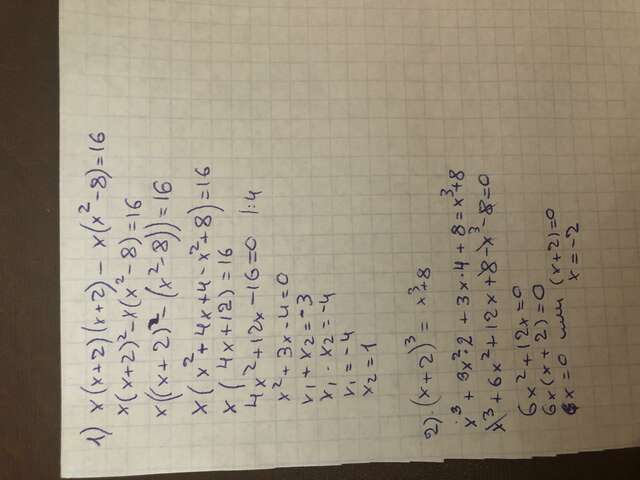 1) x(x+2)(x+2) - x(x²-8)=16
x(x+2)²-x(x²-8)=16
x((x+2)²-(x²-8))=16
x(x²+4x+4-x²+8)=16
x(4x+12)=16
4x²+12x-16=0 |:4
x²+3x-4=0
x₁+x₂=-3
x₁·x₂=-4
x₁=-4
x₂=1
2)·(x+2)³= x³+8
x³+3x²·2+3x·4+8=x³+8
x³+6x²+12x+8-x³-8=0
6x²+12x=0
6x(x+2)=0
6x=0 или (x+2)=0
x=-2